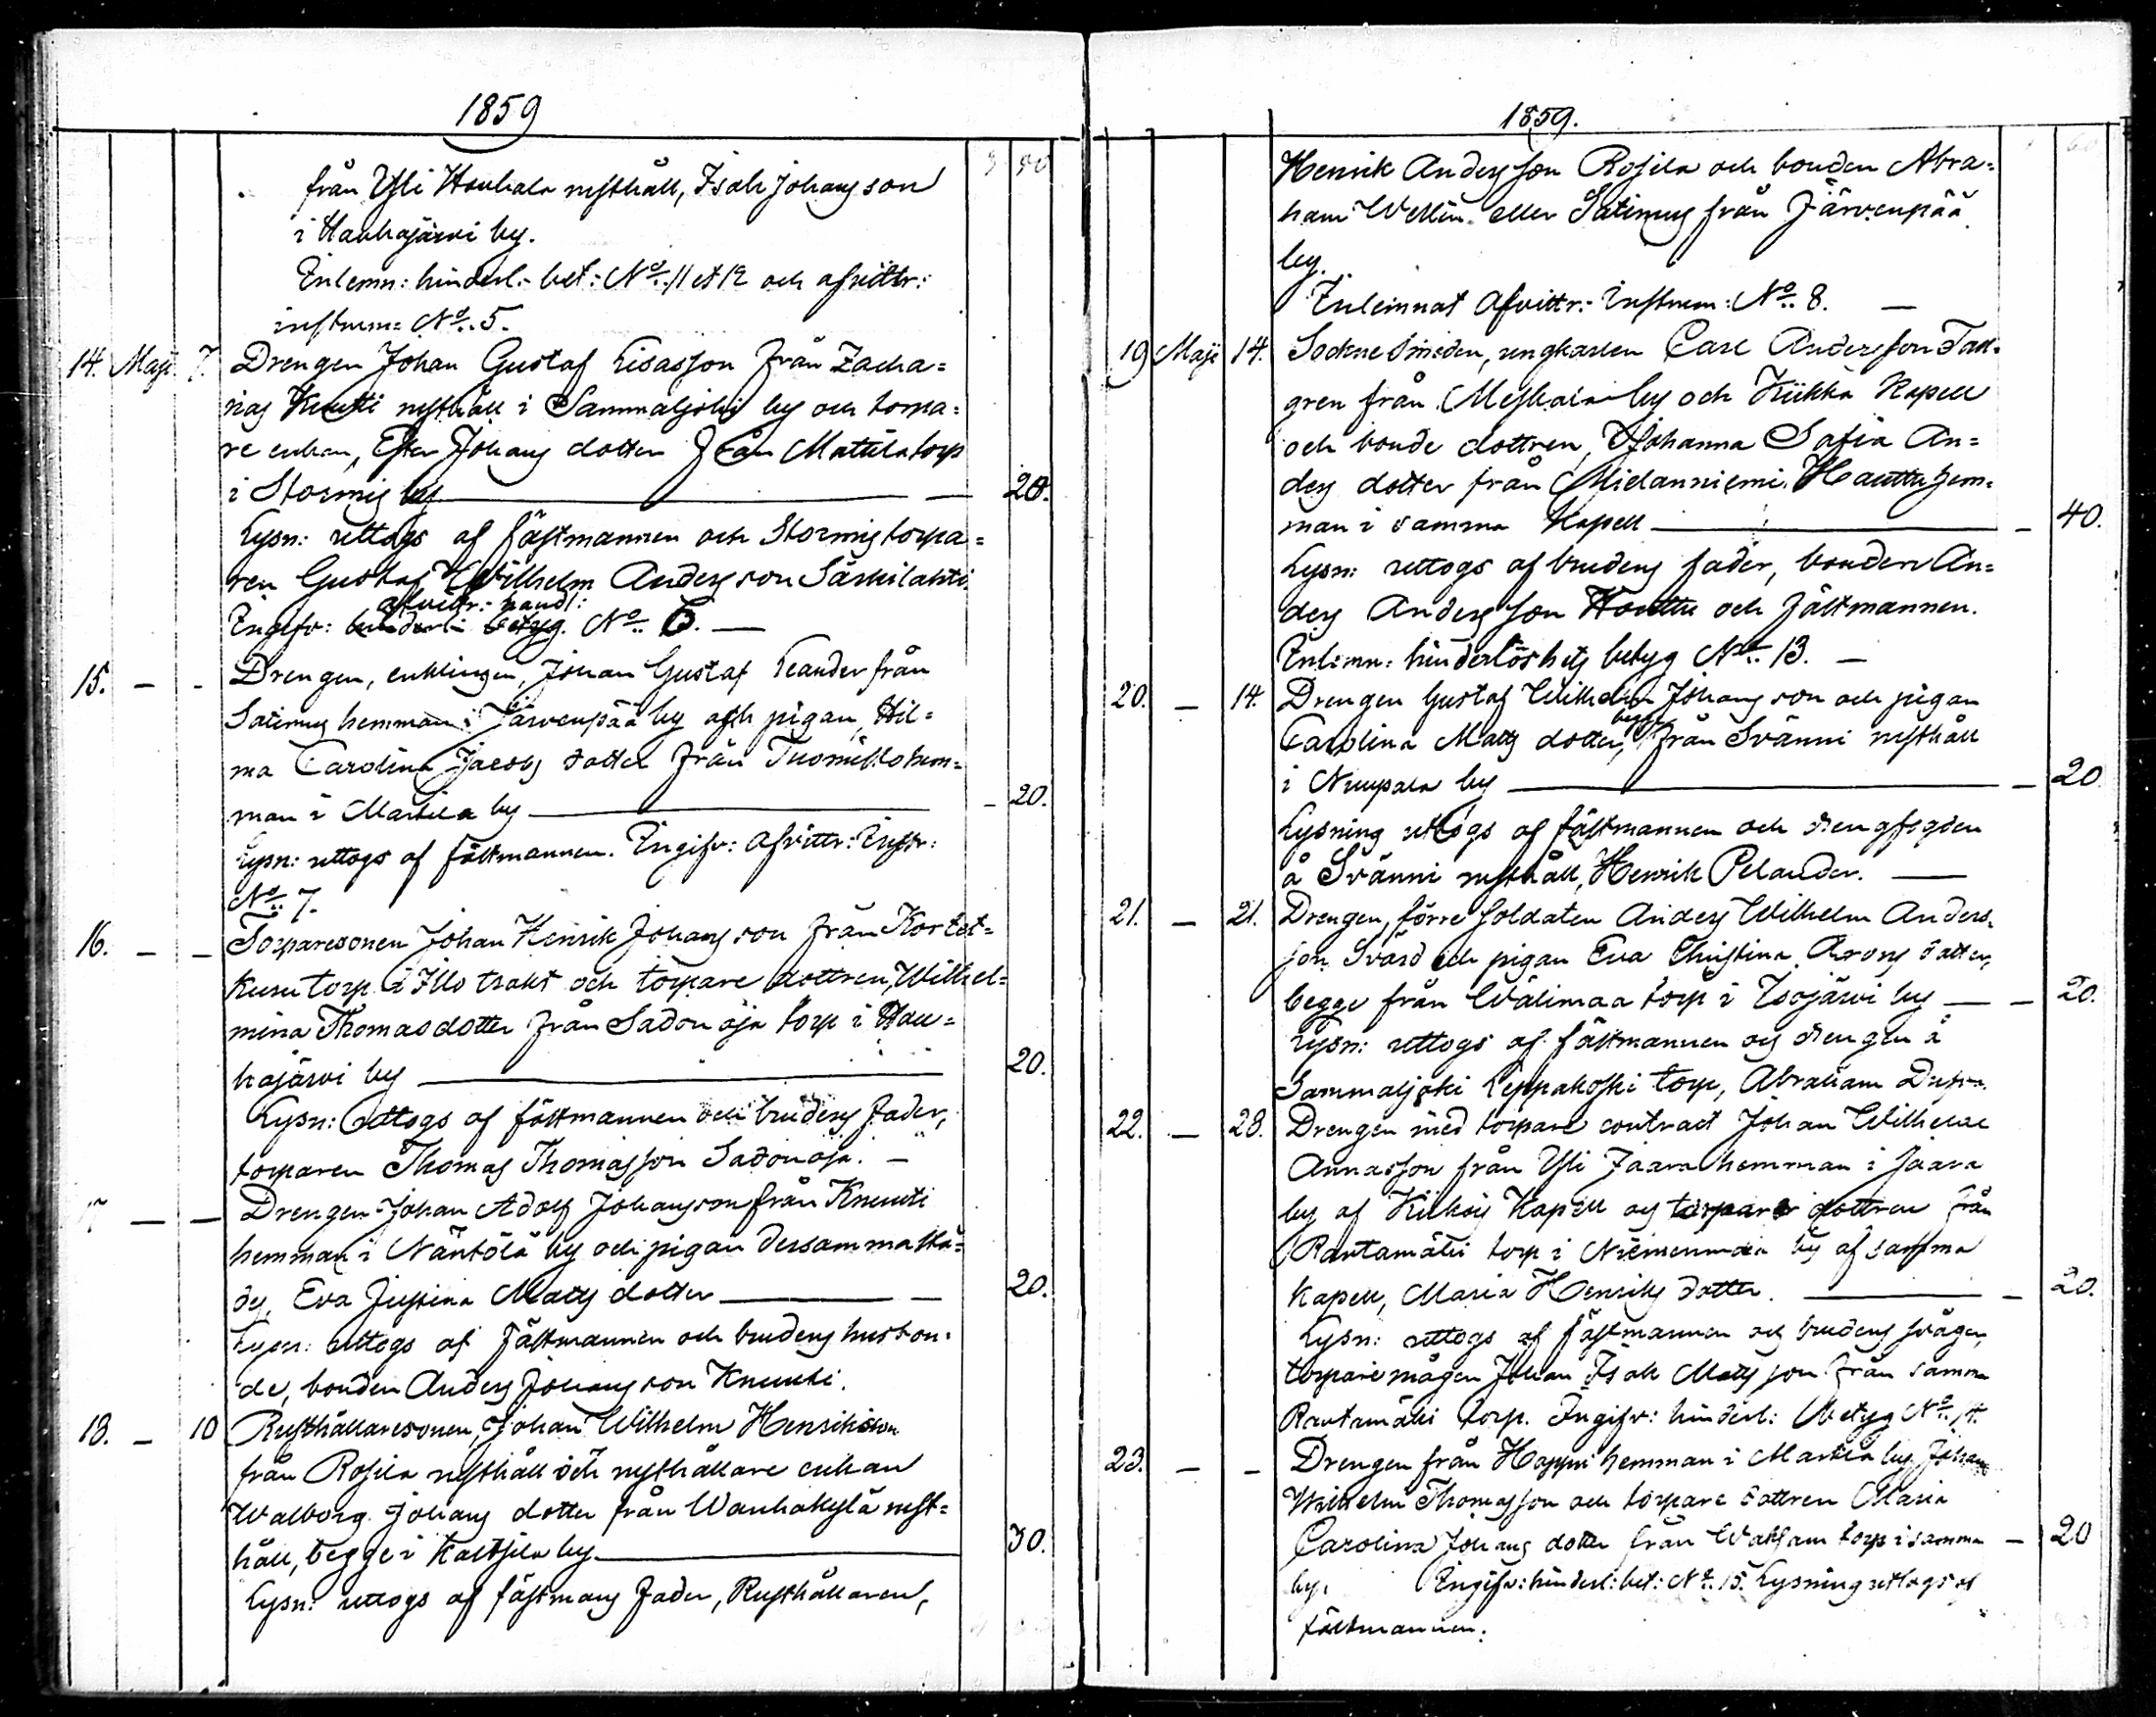 1859
från Yli Houhala rusthåll, Isak Johansson
i Houhajärvi by.
Inlemn: hinderl:- bet: No. 11 et 12 och afvittr:
instrum: No. 5.
14. Maji 7. Drengen Johan Gustaf Lisasson från Zacha=
rias Knutti rusthåll i Sammaljoki by och torpa=
re enkan, Ester Johans dotter från Mattila torp
i Stormis by — 20.
Lysn: uttogs af fästmannen och Stormis torpa=
ren Gustaf Wilhelm Andersson Särkilahti.
afvittr:- handl:
Ingifv: hinderl:- betyg. No. 6. —
15. — - Drengen, enklingen, Johan Gustaf Leander från
Satimus hemman i Järvenpää by och pigan, Hil=
ma Carolina Jacobs dotter från Tuomisto hem=
man i Markila by — 20.
Lysn: uttogs af fästmannen. Ingifv: afvittr: Instr:
No. 7.
16. — — Torparesonen Johan Henrik Johansson från Kortet=
kusu torp i Illo trakt och torpare dottren, Wilhel=
mina Thomasdotter från Sadonoja torp i Hou=
hajärvi by — 20.
Lysn: uttogs af fästmannen och brudens fader,
torparen Thomas Thomasson Sadonoja. —
17 — — Drengen Johan Adolf Johansson från Knuuti
hemman i Näntölä by och pigan dersammastä=
des, Eva Justina Mats dotter — 20.
Lysn: uttogs af fästmannen och brudens husbon=
de, bonden Anders Johansson Knuuti.
18. — 10 Rusthållaresonen, Johan Wilhelm Henriksson
från Rosila rusthåll och rusthållare enkan
Walborg Johans dotter från Wanhakylä rust=
håll, begge i Kaltsila by — 30.
Lysn: uttogs af fästmans fader, Rusthållaren,
1859.
Henrik Andersson Rosila och bonden Abra=
ham Wellin eller Satimus från Järvenpää
by.
Inlemnat afvittr:- Instrum: No. 8. —
19 Maji 14. Sockne Smeden, ungkarlen Carl Andersson Tall=
gren från Meskala by och Kiikka Kapell
och bonde dottren, Johanna Sofia An=
ders dotter från Mielanniemi Hauttu hem=
man i samma Kapell — 40.
Lysn: uttogs af brudens fader, bonden An=
ders Andersson Hauttu och fästmannen.
Inlemn: hinderlöshets betyg No. 13. —
20. — 14. Drengen Gustaf Wilhelm Johansson och pigan
Carolina Mats dotter, begge från Svänni rusthåll
i Nuupala by — 20
Lysning uttogs af fästmannen och drengfogden
å Svänni rusthåll, Henrik Pelander. —
21. — 21. Drengen, förre soldaten Anders Wilhelm Anders=
son Svärd och pigan Eva Christina Arons dotter,
begge från Wälimaa torp i Isojärvi by — 20.
Lysn: uttogs af fästmannen och drengen å
Sammaljoki Leppäkoski torp, Abraham
22. — 28. Drengen med torpare contract Johan Wilhelm
Annasson från Yli Jaara hemman i Jaara
by af Kiikois Kapell och torpare dottren från
Rautamäki torp i Niemenmaa by af samma
Kapell, Maria Henriks dotter. — 20.
Lysn: uttogs af fästmannen och brudens svåger,
torparemågen Johan Isak Matsson från samma
Rautamäki torp. Ingifv: hinderl: betyg No. 14.
23. — - Drengen från Happu hemman i Markila by Johan
Wilhelm Thomasson och torpare dottren Maria
Carolina Johans dotter från Watsam torp i samma — 20
by. Ingifv: hinderl: bet: No. 15. Lysning uttogs af
fästmannen.